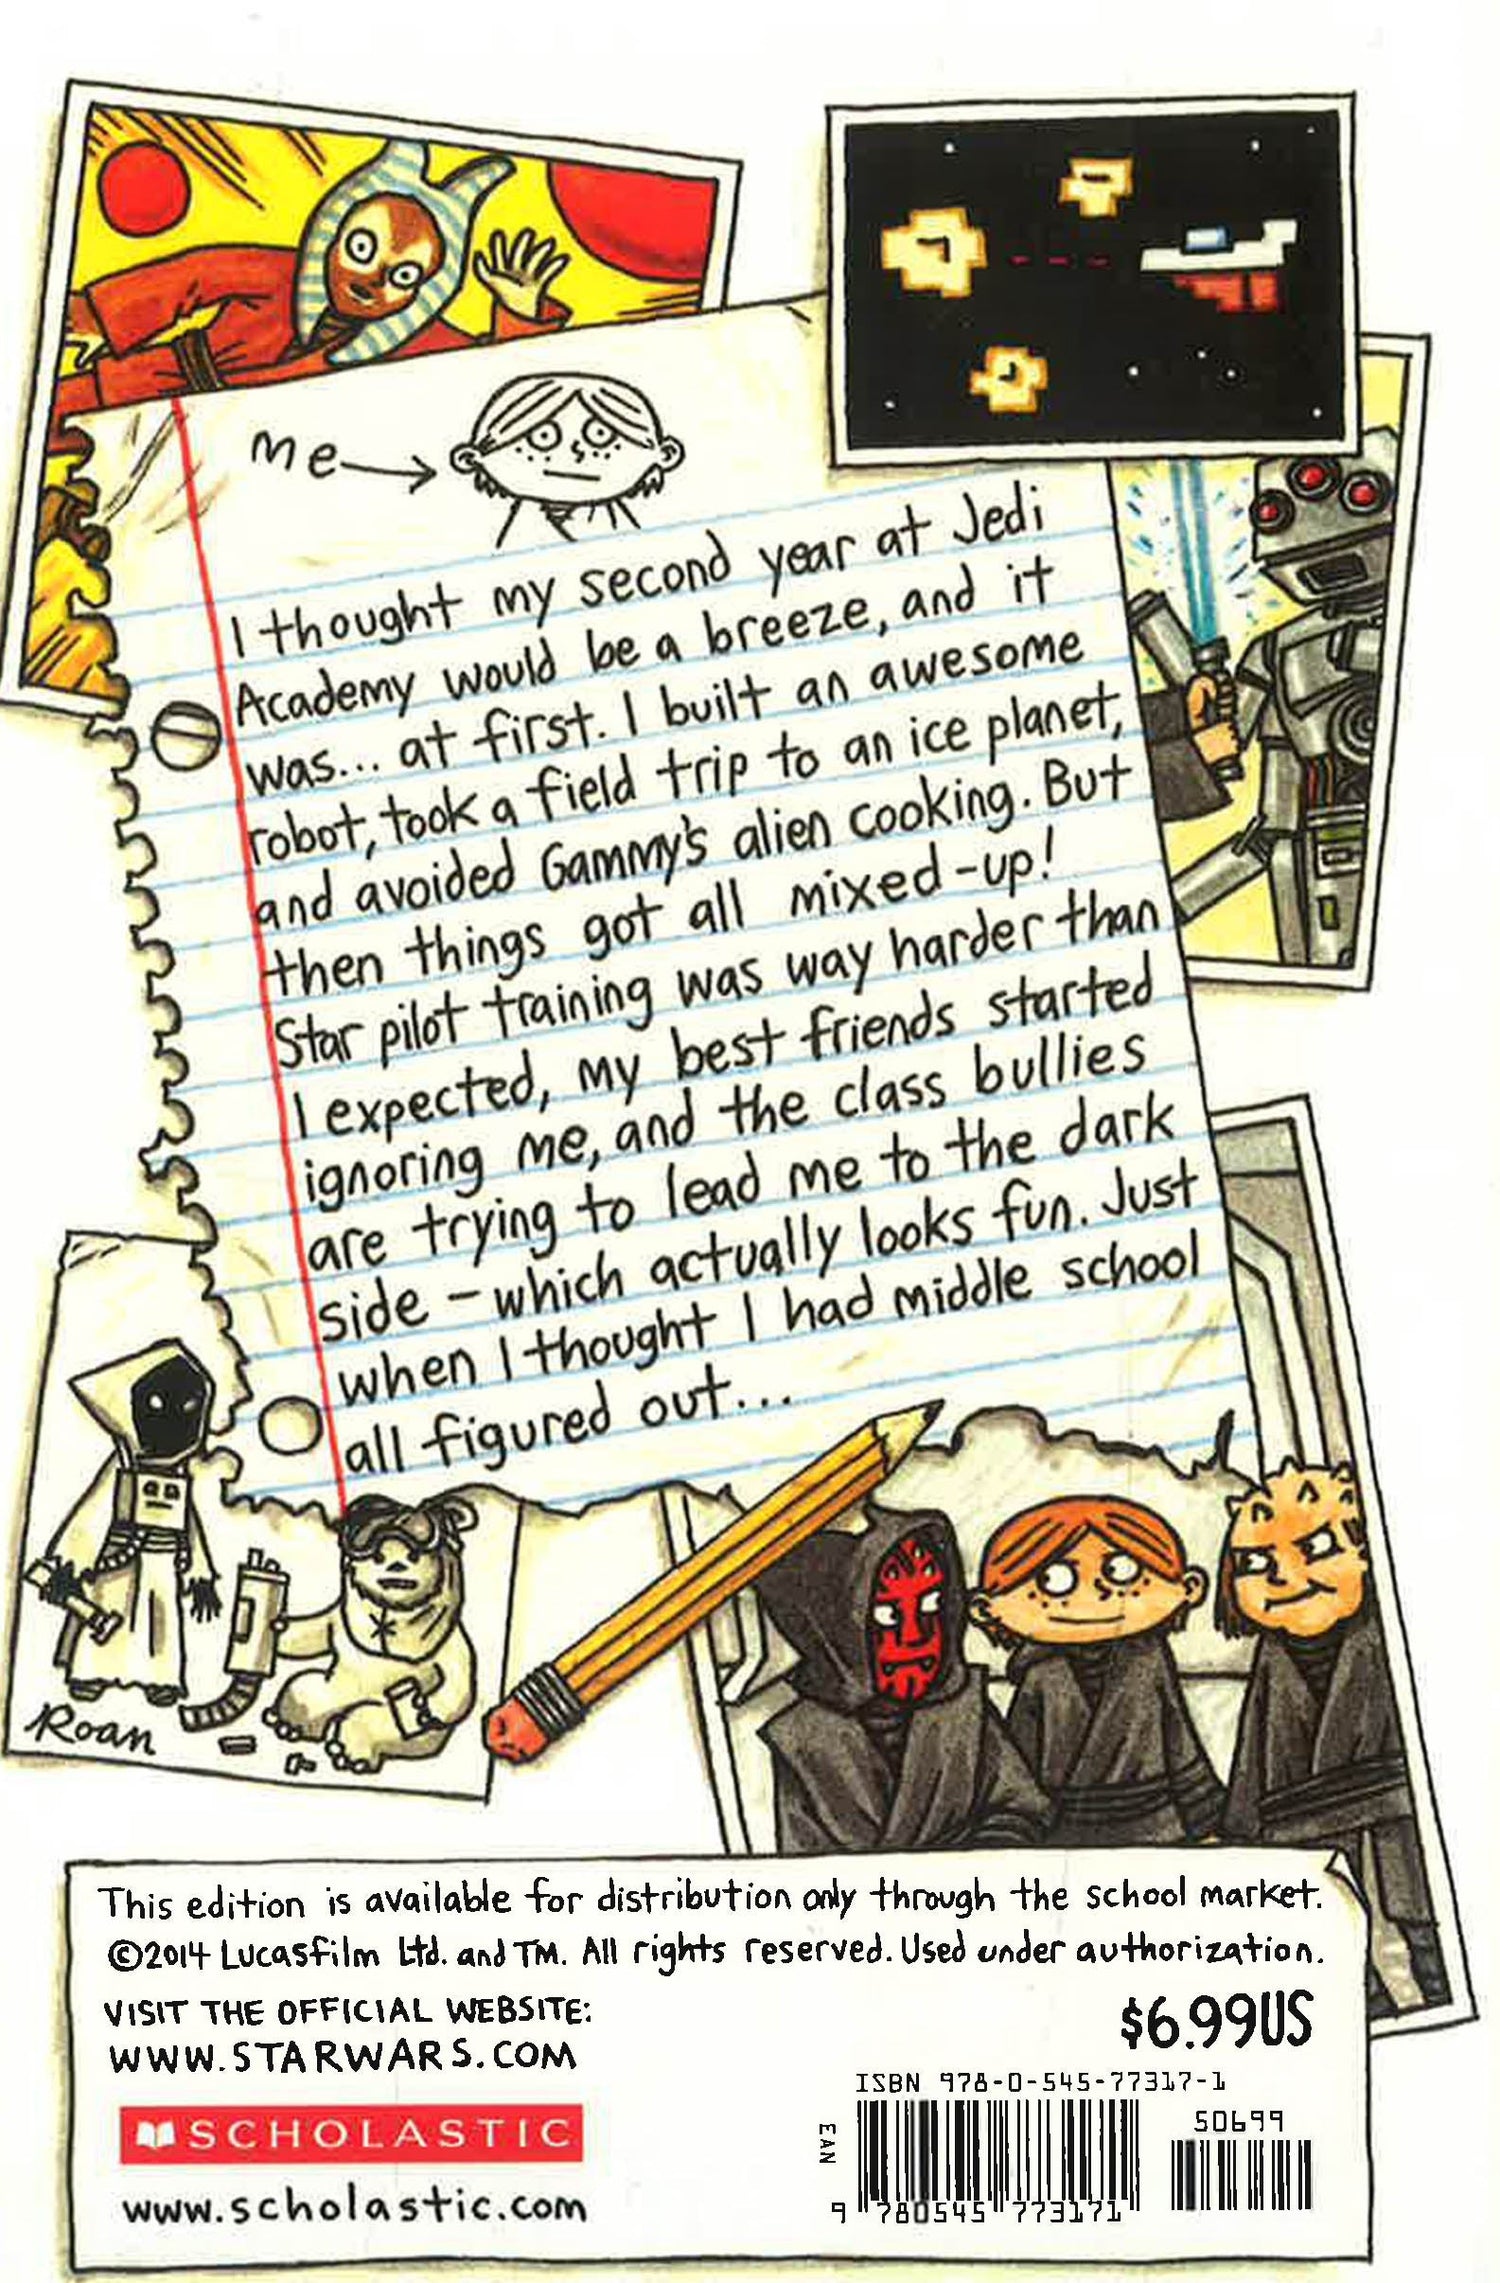 me
I thought my second year at Jedi
Academy would be a breeze, and it
was... at first. I built an awesome
robot, took a field trip to an ice planet,
and avoided Gammy's alien cooking. But
then things got all mixed-up!
Star pilot training was way harder than
I expected, my best friends started
ignoring me, and the class bullies
are trying to lead me to the dark
side - which actually looks fun. Just
when I thought I had middle school
all figured out...
Roan
This edition is available for distribution only through the school market.
©2014 Lucasfilm Ltd. and TM. All rights reserved. Used under authorization.
VISIT THE OFFICIAL WEBSITE:
WWW.STARWARS.COM
$6.99US
ISBN 978-0-545-77317-1
50699
EAN
9 780545 773171
SCHOLASTIC
www.scholastic.com